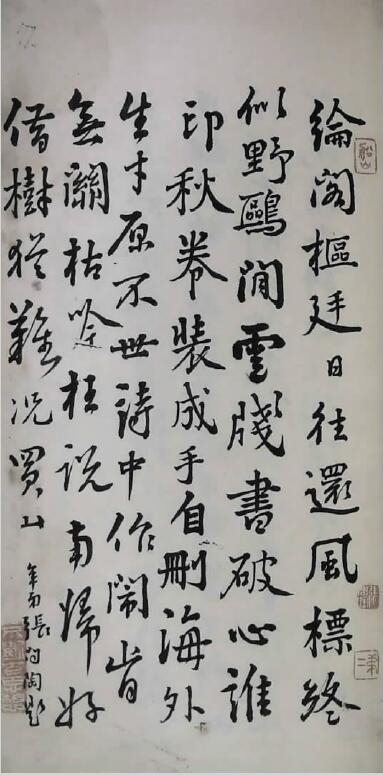 綸閣樞廷日往還風標終
似野鷗閒雲牋書破心誰
印秋卷裝成手自刪海外
生才原不世詩中作鬧皆
無關枯吟枉説南歸好
借樹猶難況買山
年弟張問陶題
船山